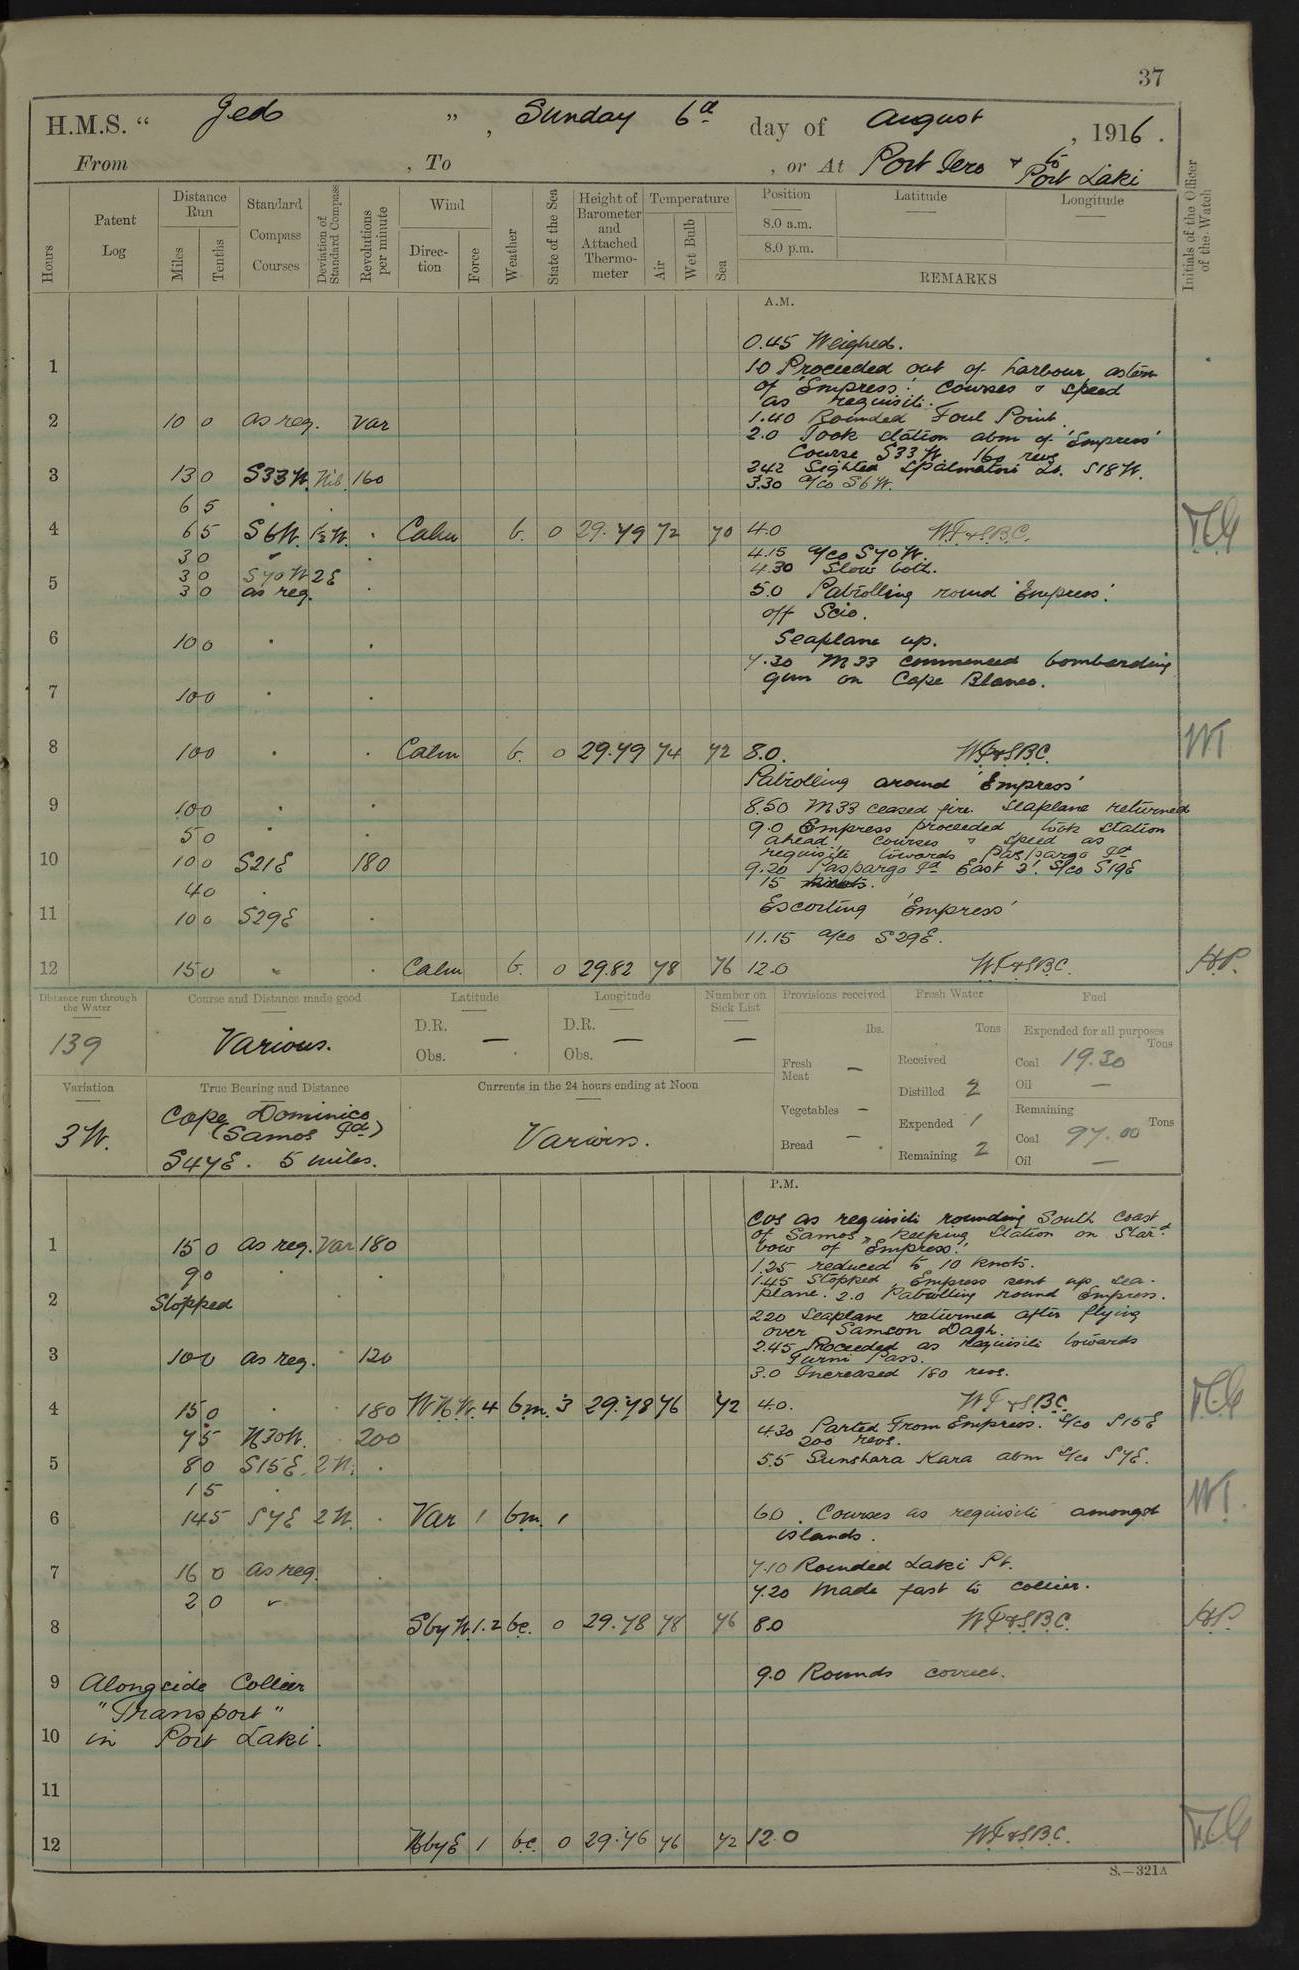 37
H.M.S. “ Jed ” , Sunday 6th day of August , 1916 .
From , To , or At Port Iero & to Port Laki
Hours
Patent Log
Distance Run
Miles
Tenths
Standard Compass Courses
Deviation of Standard Compass
Revolutions per minute
Wind
Direction
Force
Weather
State of the Sea
Height of Barometer and Attached Thermometer
Temperature
Air
Wet Bulb
Sea
Position
Latitude
Longitude
8.0 a.m.
8.0 p.m.
REMARKS
Initials of the Officer of the Watch
A.M.
0.45 Weighed.
1 1.0 Proceeded out of harbour astern
of 'Empress'. Courses & speed
as requisite.
2 10 0 as req. Var 1.40 Rounded Foul Point
2.0 Took station abm of 'Empress'
Course S33W. 160 revs
3 13 0 S33W. Nil. 160 2.42 Sighted Spalmatori Lt. S18W.
3.30 a/co S6W.
6 5
4 6 5 S6W. 1½W. Calm b. 0 29.79 72 70 4.0 WT&SBC.
3 0 4.15 a/co S70W.
3 0 S70W 2E 4.30 Slow both.
5 3 0 as req. 5.0 Patrolling round 'Empress'.
off Scio.
6 10 0 Seaplane up.
7.30 M33 commenced bombarding
gun on Cape Blanco.
7 10 0
8 10 0 Calm b. 0 29.79 74 72 8.0. WT&SBC. WT
Patrolling around 'Empress'
9 10 0 8.50 M33 ceased fire. Seaplane returned
5 0 9.0 Empress proceeded took station
ahead courses & speed as
requisite towards Paspargo Id
10 10 0 S21E 180 9.20 Paspargo Id East 2'. S/co S19E
4 0 15 knots.
11 10 0 S29E Escorting 'Empress'
11.15 a/co S29E.
12 15 0 " Calm b. 0 29.82 78 76 12.0 WT&SBC. HP.
Distance run through the Water
139
Course and Distance made good
Various.
Latitude
D.R. —
Obs.
Longitude
D.R. —
Obs.
Number on Sick List
—
Provisions received
lbs.
Fresh Meat —
Vegetables —
Bread —
Fresh Water
Tons
Received
Distilled 2
Expended 1
Remaining 2
Fuel
Expended for all purposes
Tons
Coal 19.30
Oil —
Remaining
Tons
Coal 97.00
Oil —
Variation
3W.
True Bearing and Distance
Cape Dominico
(Samos Id)
S47E. 5 miles.
Currents in the 24 hours ending at Noon
Various.
P.M.
Cos as requisite rounding South coast
1 15 0 as req. Var 180 of Samos, keeping station on Stard
bow of "Empress".
9 0 1.25 reduced to 10 knots.
1.45 Stopped Empress sent up sea-
2 Stopped plane. 2.0 Patrolling round Empress.
2.20 Seaplane returned after flying
over Samson Dagh.
3 10 0 as req. 120 2.45 Proceeded as requisite towards
Furni Pass.
3.0 Increased 180 revs.
4 15 0 180 WNW. 4 b.m. 3 29.78 76 72 4.0. WT&SBC.
7 5 N30W. 200 4.30 Parted From Empress. S/co S15E
200 revs.
5 8 0 S15E. 2W. 5.5 abm S/co S7E.
1 5
6 14 5 S7E 2W. Var 1 b.m. 1 6.0. Courses as requisite amongst
islands. WT.
7 16 0 as req. 7.10 Rounded Laki Pt.
2 0 " 7.20 Made fast to collier.
8 SbyW. 1.2 bc. 0 29.78 78 76 8.0 WT&SBC. HP.
9 Alongside Collier 9.0 Rounds correct.
"Transport"
10 in Port Laki.
11
12 NbyE 1 bc. 0 29.76 76 72 12.0 WT&SBC.
S.—321A